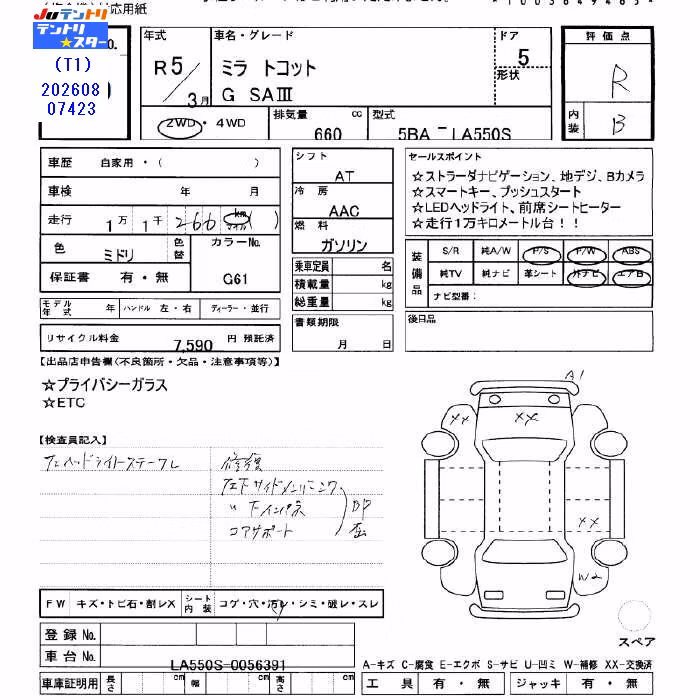 対応用紙
Juテントリ
テントリ
★スター
(T1)
202608
07423
No.
年式
R5
3月
車名・グレード
ミラ トコット
G SAⅢ
ドア
5
形状
評価点
R
内装
B
2WD・4WD
排気量
660
cc
型式
5BA - LA550S
車歴
自家用・( )
車検
年 月
走行
1万 1千 266 km マイル ( )
色
ミドリ
色替
カラーNo.
G61
保証書
有・無
シフト
AT
冷房
AAC
燃料
ガソリン
乗車定員 名
積載量 kg
総重量 kg
セールスポイント
☆ストラーダナビゲーション、地デジ、Bカメラ
☆スマートキー、プッシュスタート
☆LEDヘッドライト、前席シートヒーター
☆走行1万キロメートル台!!
装備品
S/R 純A/W P/S P/W ABS
純TV 純ナビ 革シート 外ナビ エアB
ナビ型番:
モデル年式 年
ハンドル 左・右
ディーラー・並行
書類期限
月 日
後日品
リサイクル料金
7,590 円 預託済
【出品店申告欄(不良箇所・欠品・注意事項等)】
☆プライバシーガラス
☆ETC
【検査員記入】
修復
コアサポート
A1
XX
XX
XX
W2
FW
キズ・トビ石・割レX
シート内装
コゲ・穴・汚レ・シミ・破レ・スレ
登録No.
車台No.
LA550S-0056391
スペア
A-キズ C-腐食 E-エクボ S-サビ U-凹ミ W-補修 XX-交換済
車庫証明用
長さ cm
幅 cm
高さ cm
工具 有・無
ジャッキ 有・無